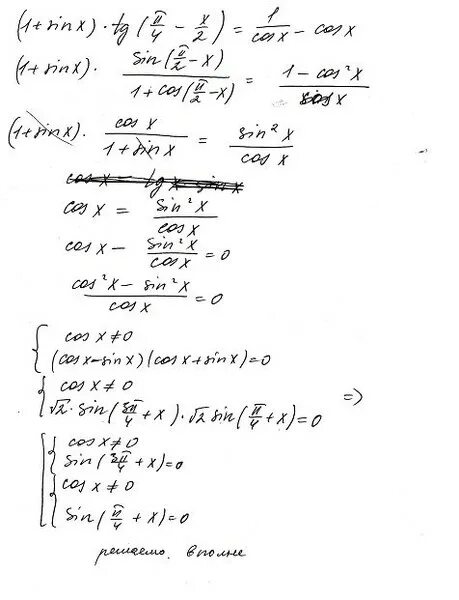 (1+sinx)·tg(π/4 − x/2) = 1/cosx − cosx
(1+sinx)· sin(π/2−x)/1+cos(π/2−x) = 1−cos²x/cosx
(1+sinx)· cosx/1+sinx = sin²x/cosx
cosx = tgx·sinx
cosx = sin²x/cosx
cosx − sin²x/cosx = 0
cos²x − sin²x/cosx = 0
cosx≠0
(cosx−sinx)(cosx+sinx)=0
cosx≠0
√2·sin(3π/4+x)·√2sin(π/4+x)=0 =>
cosx≠0
sin(3π/4+x)=0
cosx≠0
sin(π/4+x)=0
решаемо вполне